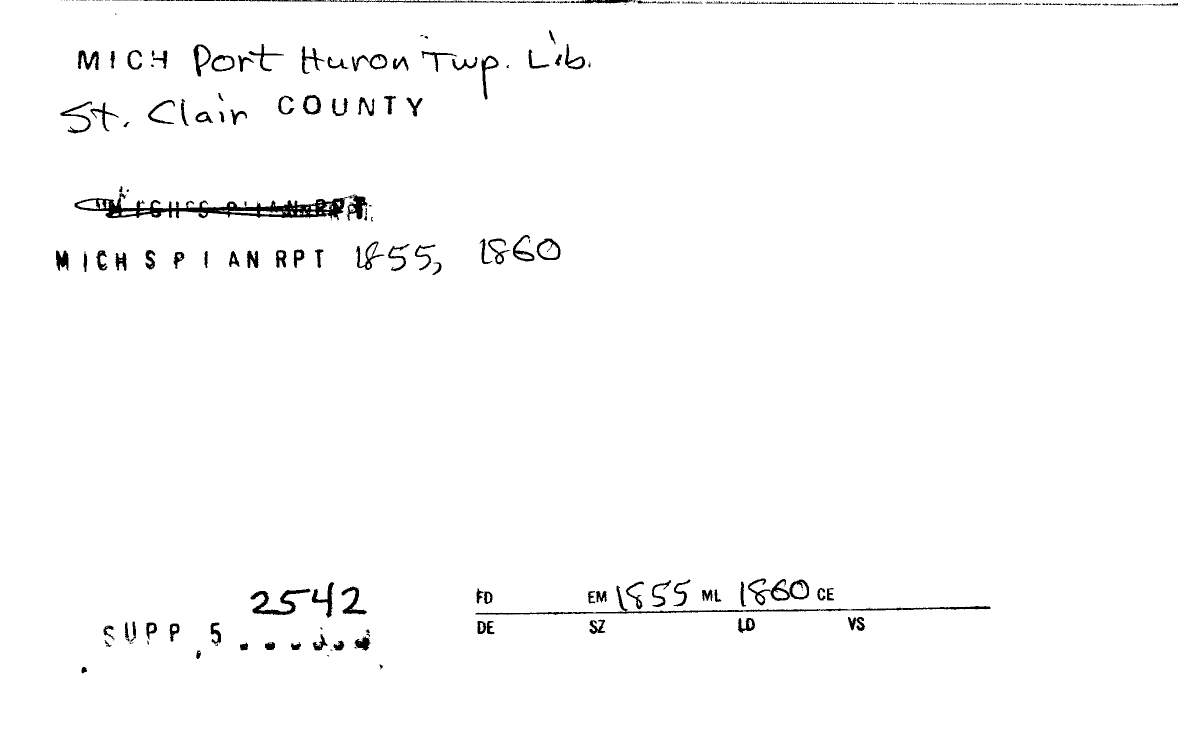 MICH Port Huron Twp. Lib.
St. Clair COUNTY
MICHSPIANRPT 1855, 1860
2542
SUPP, 5......
FD EM 1855 ML 1860 CE
DE SZ LD VS